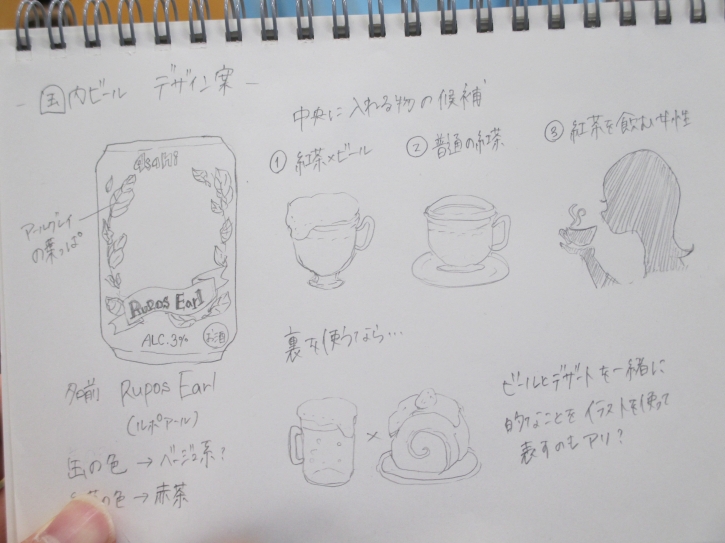 - 国内ビール デザイン案 -
中央に入れる物の候補
① 紅茶×ビール
② 普通の紅茶
③ 紅茶を飲む女性
asahi
アールグレイ
の葉っぱ
Rupos Earl
ALC.3%
お酒
名前 Rupos Earl
(ルポアール)
缶の色 → ベージュ系?
の色 → 赤茶
裏を使うなら…
×
ビールとデザートを一緒に
的なことをイラストを使って
表すのもアリ?